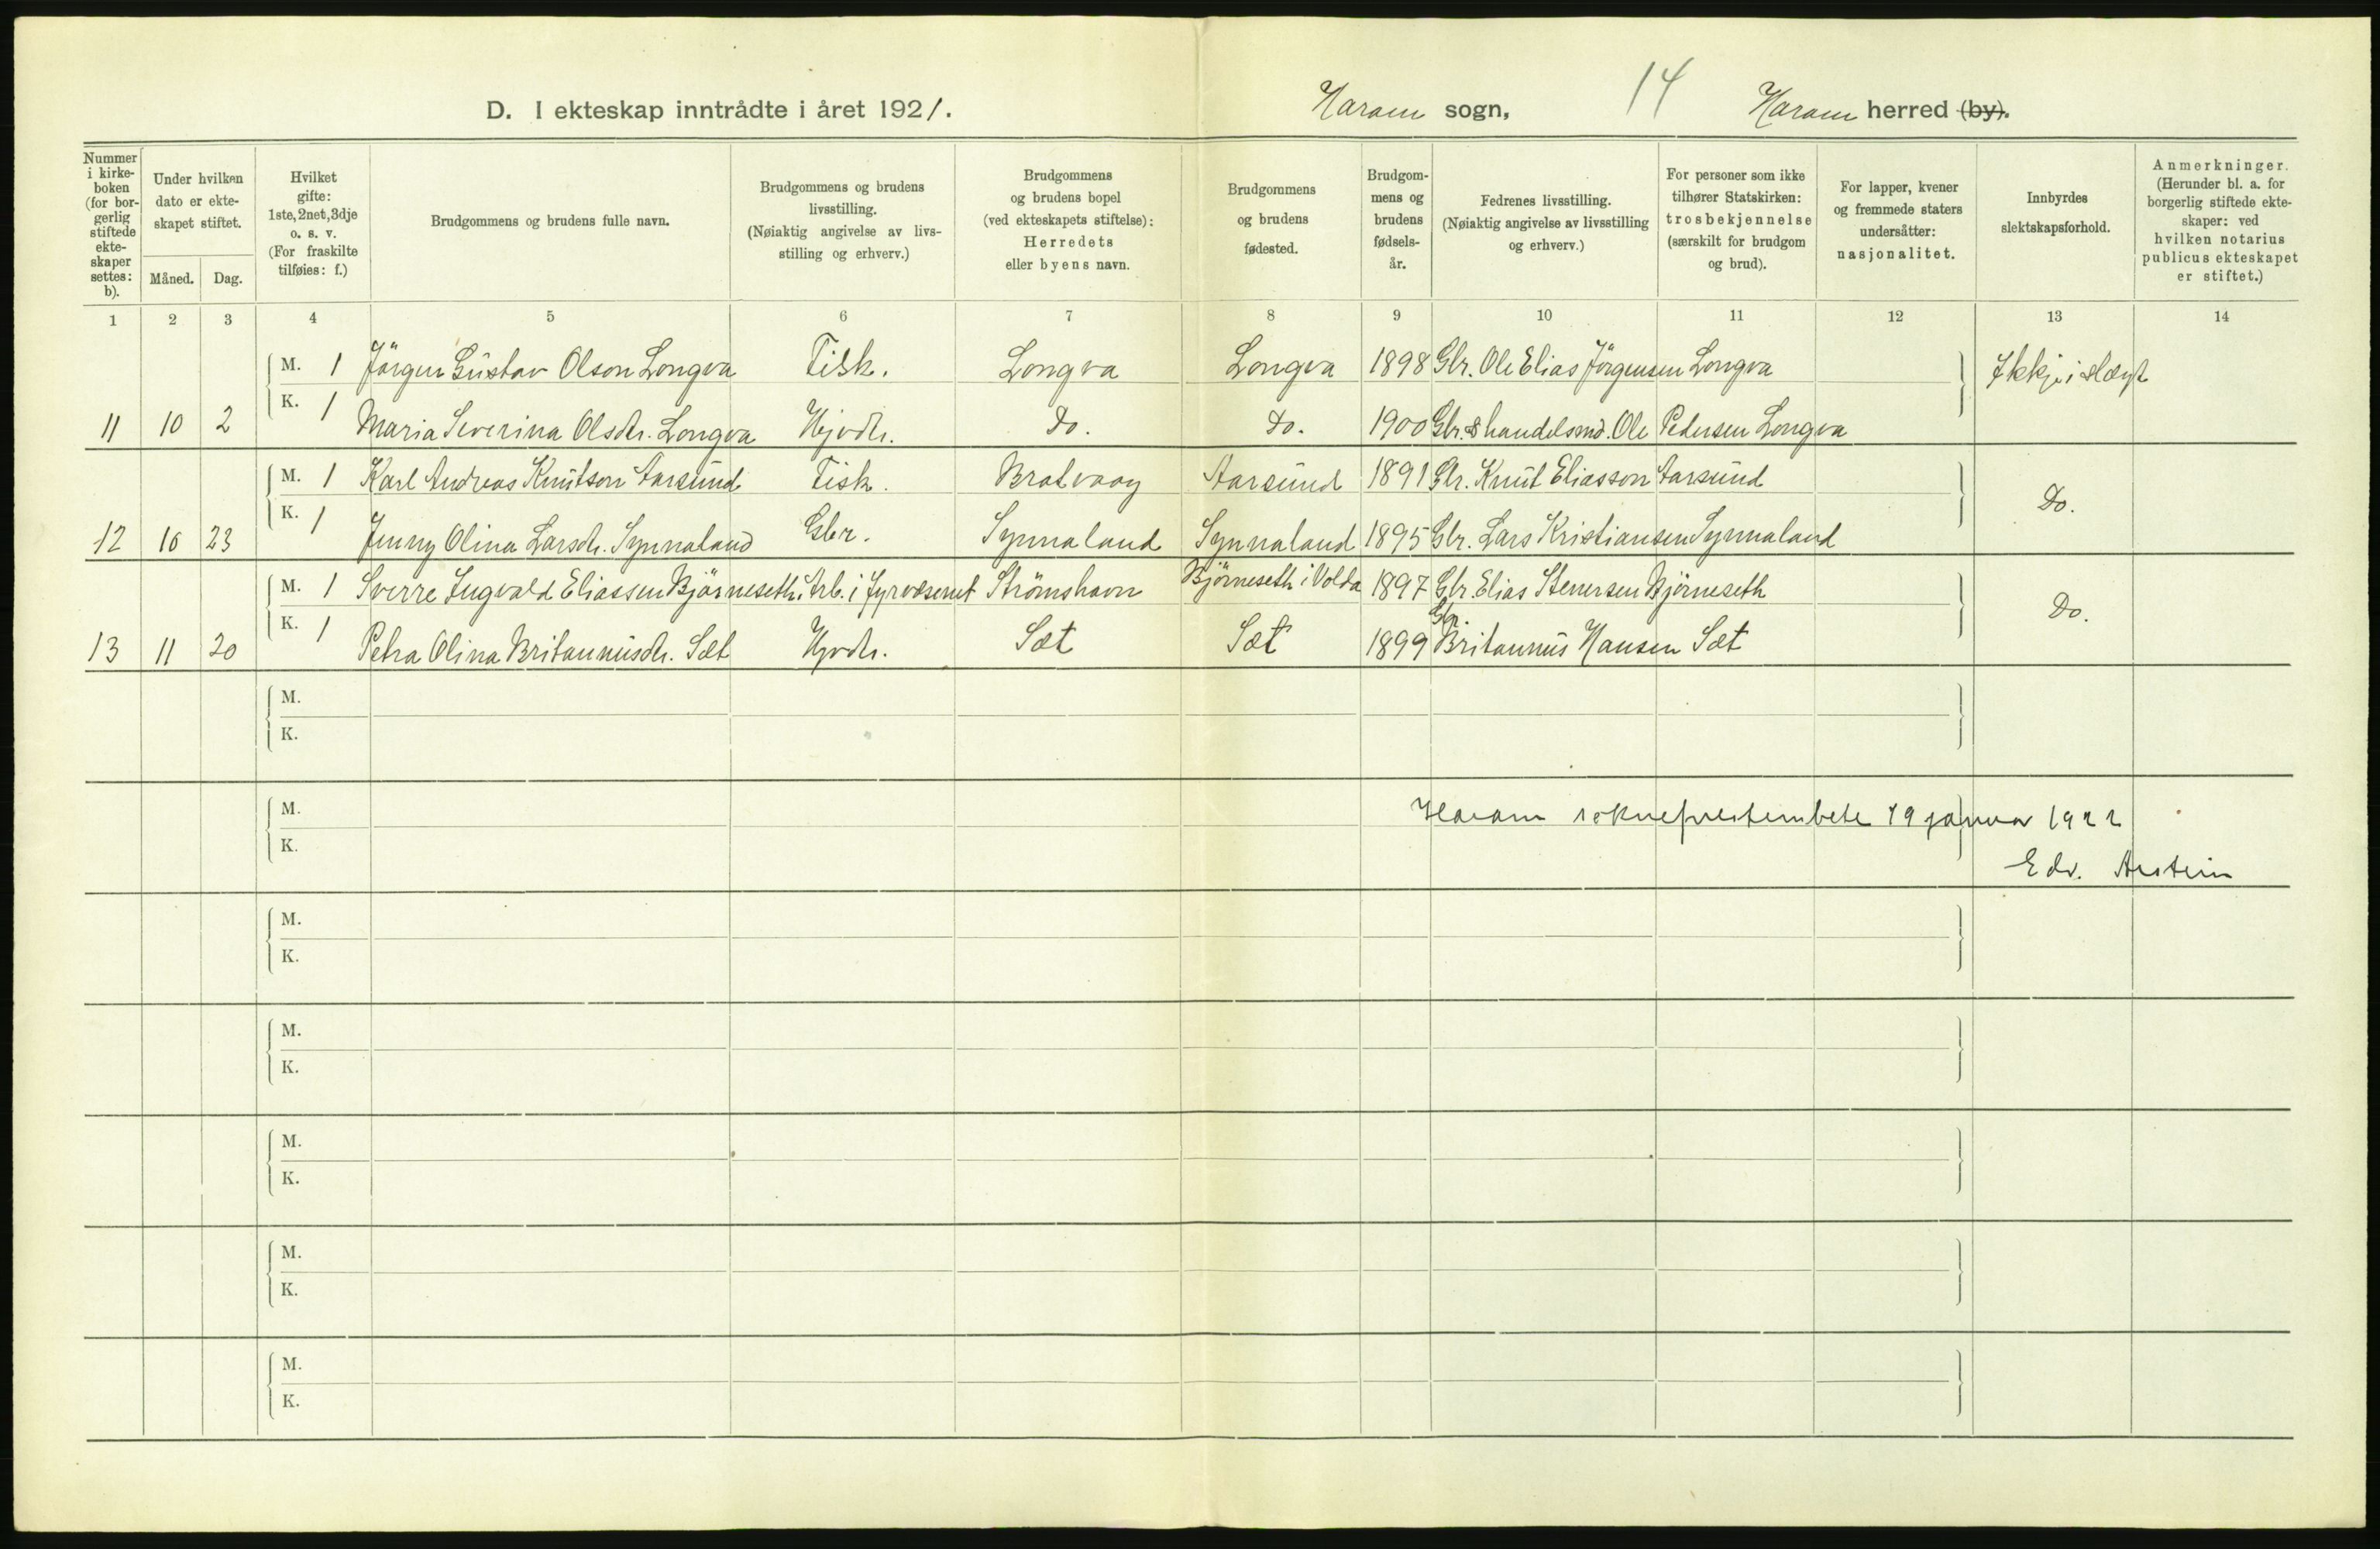 D. I ekteskap inntrådte i året 1921.
Haram sogn,
14
Haram herred (by).
Nummer i kirke-boken (for bor-gerlig stiftede ekte-skaper settes: b).
Under hvilken dato er ekte-skapet stiftet.
Måned.
Dag.
Hvilket gifte: 1ste, 2net, 3dje o. s. v. (For fraskilte tilføies: f.)
Brudgommens og brudens fulle navn.
Brudgommens og brudens livsstilling. (Nøiaktig angivelse av livs-stilling og erhverv.)
Brudgommens og brudens bopel (ved ekteskapets stiftelse): Herredets eller byens navn.
Brudgommens og brudens fødested.
Brudgom-mens og brudens fødsels-år.
Fedrenes livsstilling. (Nøiaktig angivelse av livsstilling og erhverv.)
For personer som ikke tilhører Statskirken: trosbekjennelse (særskilt for brudgom og brud).
For lapper, kvener og fremmede staters undersåtter: nasjonalitet.
Innbyrdes slektskapsforhold.
Anmerkninger. (Herunder bl. a. for borgerlig stiftede ekte-skaper: ved hvilken notarius publicus ekteskapet er stiftet.)
1 2 3 4 5 6 7 8 9 10 11 12 13 14
M. 1 Jörgen Gustav Olson Longva Fisk. Longva Longva 1898 Gbr. Ole Elias Jörgensen Longva Ikkje i slægt
11 10 2 K. 1 Maria Severina Olsdtr. Longva Hjvdtr. Do. Do. 1900 Gbr. & handelsmd. Ole Pedersen Longva
M. 1 Karl Andreas Knutson Aarsund Fisk. Bratvaag Aarsund 1891 Gbr. Knut Eliasson Aarsund Do.
12 10 23 K. 1 Jenny Olina Larsdtr. Synnaland Gbr. Synnaland Synnaland 1895 Gbr. Lars Kristiansen Synnaland
M. 1 Sverre Ingvald Eliassen Björneseth. Arb. i fyrvæsenet Strömshavn Björneseth i Volda 1897 Gbr. Elias Stenersen Björneseth Do.
13 11 20 K. 1 Petra Olina Britannusdtr. Sæt Hjvdtr. Sæt Sæt 1899 Gbr. Britannus Hansen Sæt
M.
K.
M.
Haram sokneprestembete 19 januar 1922
K.
Edv. Austein
M.
K.
M.
K.
M.
K.
M.
K.
M.
K.